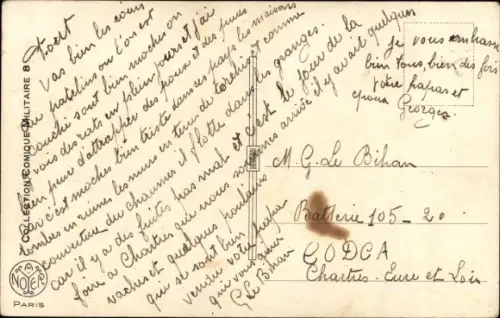 COLLECTION COMIQUE MILITAIRE 8
NOYER
PARIS
Vas bien les
patelins ou l'on est
couché sont bien moches on
vois des rats en plein jours et j'ai
bien peur d'attrapper des poux et des puces
car c'est moches bien triste dans ces pays les maisons
tombes en ruines les murs en terre de torchis et comme
couverture du chaumes il flotte dans les granges.
car il y a des fuites pas mal et c'est le jour de la
foire a Chartres que nous sommes arrivé il y avait quelques
vaches et quelques poulains
qui se sont bien
vendue votre papa
qui vous aime
G Le Bihan
Je vous embrasse
bien tous, bien des fois
votre papas et
époux
Georges.
M. G. Le Bihan
Batterie 105-20
CODCA
Chartres. Eure et Loir